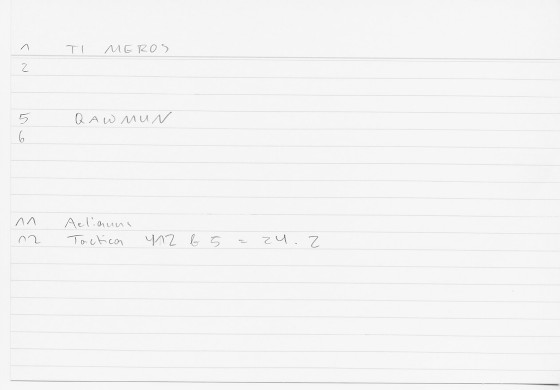 1 TI MEROS
2
5 QAWMUN
6
11 Aelianus
12 Tactica 412 B 5 = 24.2